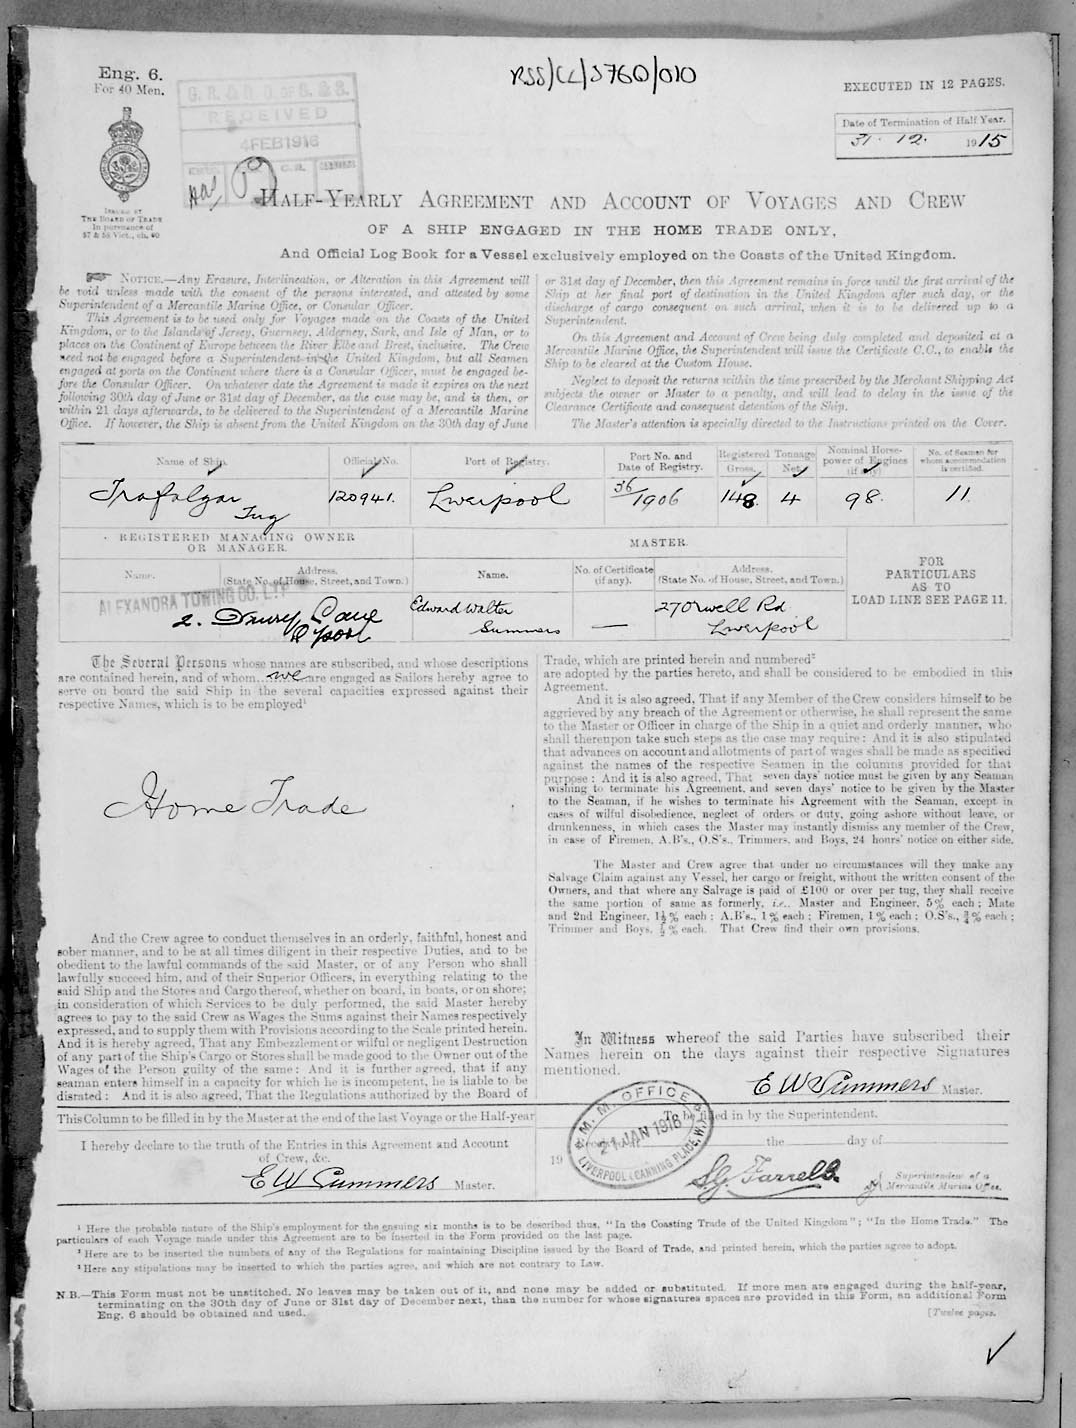 Eng. 6.
For 40 Men.
RSS/CL/3760/010
EXECUTED IN 12 PAGES.
Date of Termination of Half Year.
31. 12. 1915
G. R. & R. G. OF S. & S.
RECEIVED
4 FEB 1916
ISSUED BY
THE BOARD OF TRADE
In pursuance of
57 & 58 Vict., ch. 60
HALF-YEARLY AGREEMENT AND ACCOUNT OF VOYAGES AND CREW
OF A SHIP ENGAGED IN THE HOME TRADE ONLY,
And Official Log Book for a Vessel exclusively employed on the Coasts of the United Kingdom.
NOTICE.—Any Erasure, Interlineation, or Alteration in this Agreement will
be void unless made with the consent of the persons interested, and attested by some
Superintendent of a Mercantile Marine Office, or Consular Officer.
This Agreement is to be used only for Voyages made on the Coasts of the United
Kingdom, or to the Islands of Jersey, Guernsey, Alderney, Sark, and Isle of Man, or to
places on the Continent of Europe between the River Elbe and Brest, inclusive. The Crew
need not be engaged before a Superintendent in the United Kingdom, but all Seamen
engaged at ports on the Continent where there is a Consular Officer, must be engaged be-
fore the Consular Officer. On whatever date the Agreement is made it expires on the next
following 30th day of June or 31st day of December, as the case may be, and is then, or
within 21 days afterwards, to be delivered to the Superintendent of a Mercantile Marine
Office. If however, the Ship is absent from the United Kingdom on the 30th day of June
or 31st day of December, then this Agreement remains in force until the first arrival of the
Ship at her final port of destination in the United Kingdom after such day, or the
discharge of cargo consequent on such arrival, when it is to be delivered up to a
Superintendent.
On this Agreement and Account of Crew being duly completed and deposited at a
Mercantile Marine Office, the Superintendent will issue the Certificate C.C., to enable the
Ship to be cleared at the Custom House.
Neglect to deposit the returns within the time prescribed by the Merchant Shipping Act
subjects the owner or Master to a penalty, and will lead to delay in the issue of the
Clearance Certificate and consequent detention of the Ship.
The Master's attention is specially directed to the Instructions printed on the Cover.
Name of Ship. Official No. Port of Registry. Port No. and Date of Registry. Registered Tonnage Gross. Net. Nominal Horse-power of Engines (if any). No. of Seamen for whom accommodation is certified.
Trafalgar Tug 120941. Liverpool 36/1906 148 4 98. 11.
REGISTERED MANAGING OWNER
OR MANAGER.
MASTER.
Name. Address. (State No. of House, Street, and Town.) Name. No. of Certificate (if any). Address. (State No. of House, Street, and Town.)
FOR
PARTICULARS
AS TO
LOAD LINE SEE PAGE 11.
ALEXANDRA TOWING CO. LTD
2. Drury Lane
L'pool
Edward Walter
Summers
—
27 Orwell Rd
Liverpool
The Several Persons whose names are subscribed, and whose descriptions
are contained herein, and of whom we are engaged as Sailors hereby agree to
serve on board the said Ship in the several capacities expressed against their
respective Names, which is to be employed¹
Home Trade
And the Crew agree to conduct themselves in an orderly, faithful, honest and
sober manner, and to be at all times diligent in their respective Duties, and to be
obedient to the lawful commands of the said Master, or of any Person who shall
lawfully succeed him, and of their Superior Officers, in everything relating to the
said Ship and the Stores and Cargo thereof, whether on board, in boats, or on shore;
in consideration of which Services to be duly performed, the said Master hereby
agrees to pay to the said Crew as Wages the Sums against their Names respectively
expressed, and to supply them with Provisions according to the Scale printed herein.
And it is hereby agreed, That any Embezzlement or wilful or negligent Destruction
of any part of the Ship's Cargo or Stores shall be made good to the Owner out of the
Wages of the Person guilty of the same: And it is further agreed, that if any
seaman enters himself in a capacity for which he is incompetent, he is liable to be
disrated: And it is also agreed, That the Regulations authorized by the Board of
Trade, which are printed herein and numbered²
are adopted by the parties hereto, and shall be considered to be embodied in this
Agreement.
And it is also agreed, That if any Member of the Crew considers himself to be
aggrieved by any breach of the Agreement or otherwise, he shall represent the same
to the Master or Officer in charge of the Ship in a quiet and orderly manner, who
shall thereupon take such steps as the case may require: And it is also stipulated
that advances on account and allotments of part of wages shall be made as specified
against the names of the respective Seamen in the columns provided for that
purpose: And it is also agreed, That seven days' notice must be given by any Seaman
wishing to terminate his Agreement, and seven days' notice to be given by the Master
to the Seaman, if he wishes to terminate his Agreement with the Seaman, except in
cases of wilful disobedience, neglect of orders or duty, going ashore without leave, or
drunkenness, in which cases the Master may instantly dismiss any member of the Crew,
in case of Firemen, A.B's., O.S's., Trimmers, and Boys, 24 hours' notice on either side.
The Master and Crew agree that under no circumstances will they make any
Salvage Claim against any Vessel, her cargo or freight, without the written consent of the
Owners, and that where any Salvage is paid of £100 or over per tug, they shall receive
the same portion of same as formerly, i.e., Master and Engineer, 5% each; Mate
and 2nd Engineer, 1½% each; A.B's., 1% each; Firemen, 1% each; O.S's., ¾% each;
Trimmer and Boys, ½% each. That Crew find their own provisions.
In Witness whereof the said Parties have subscribed their
Names herein on the days against their respective Signatures
mentioned.
E W Summers Master.
This Column to be filled in by the Master at the end of the last Voyage or the Half-year
I hereby declare to the truth of the Entries in this Agreement and Account
of Crew, &c.
E W Summers Master.
To be filled in by the Superintendent.
the day of
19
M. M. OFFICE
21 JAN 1916
LIVERPOOL (CANNING PLACE, W.)
Farrell
Superintendent of a
Mercantile Marine Office.
¹ Here the probable nature of the Ship's employment for the ensuing six months is to be described thus, "In the Coasting Trade of the United Kingdom"; "In the Home Trade." The
particulars of each Voyage made under this Agreement are to be inserted in the Form provided on the last page.
² Here are to be inserted the numbers of any of the Regulations for maintaining Discipline issued by the Board of Trade, and printed herein, which the parties agree to adopt.
³ Here any stipulations may be inserted to which the parties agree, and which are not contrary to Law.
N.B.—This Form must not be unstitched. No leaves may be taken out of it, and none may be added or substituted. If more men are engaged during the half-year,
terminating on the 30th day of June or 31st day of December next, than the number for whose signatures spaces are provided in this Form, an additional Form
Eng. 6 should be obtained and used.
[Twelve pages.